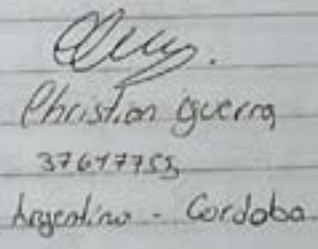 Christian Guerra
37617755
Argentina - Cordoba